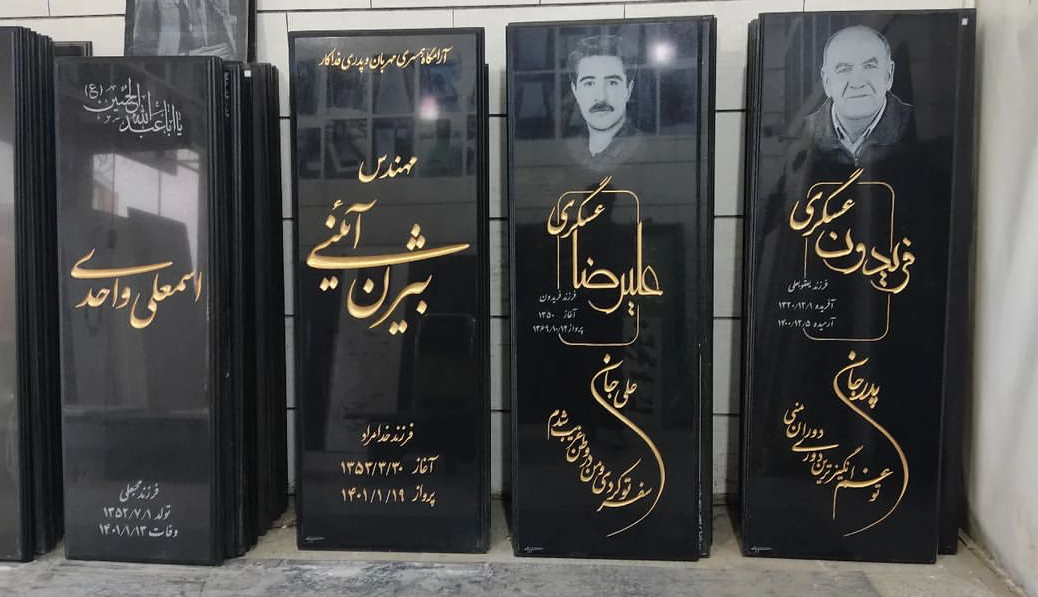 یا اباعبدالله الحسین (ع)
اسمعلی واحدی
فرزند محبعلی
تولد ۱۳۵۲/۷/۱
وفات ۱۴۰۱/۱/۱۳
آرامگاه همسری مهربان و پدری فداکار
مهندس
بیژن آئینی
فرزند خدامراد
آغاز ۱۳۵۳/۳/۳۰
پرواز ۱۴۰۱/۱/۱۹
علیرضا عسگری
فرزند فریدون
آغاز ۱۳۵۰
پرواز ۱۳۶۹/۱۰/۱۲
علی جان
سفر تو کردی و من در وطن غریب شدم
فریدون عسگری
فرزند یعقوبعلی
آفریده ۱۳۲۰/۱۲/۱
آرمیده ۱۴۰۰/۱۲/۵
پدر جان
تو غم انگیزترین دوری دوران منی